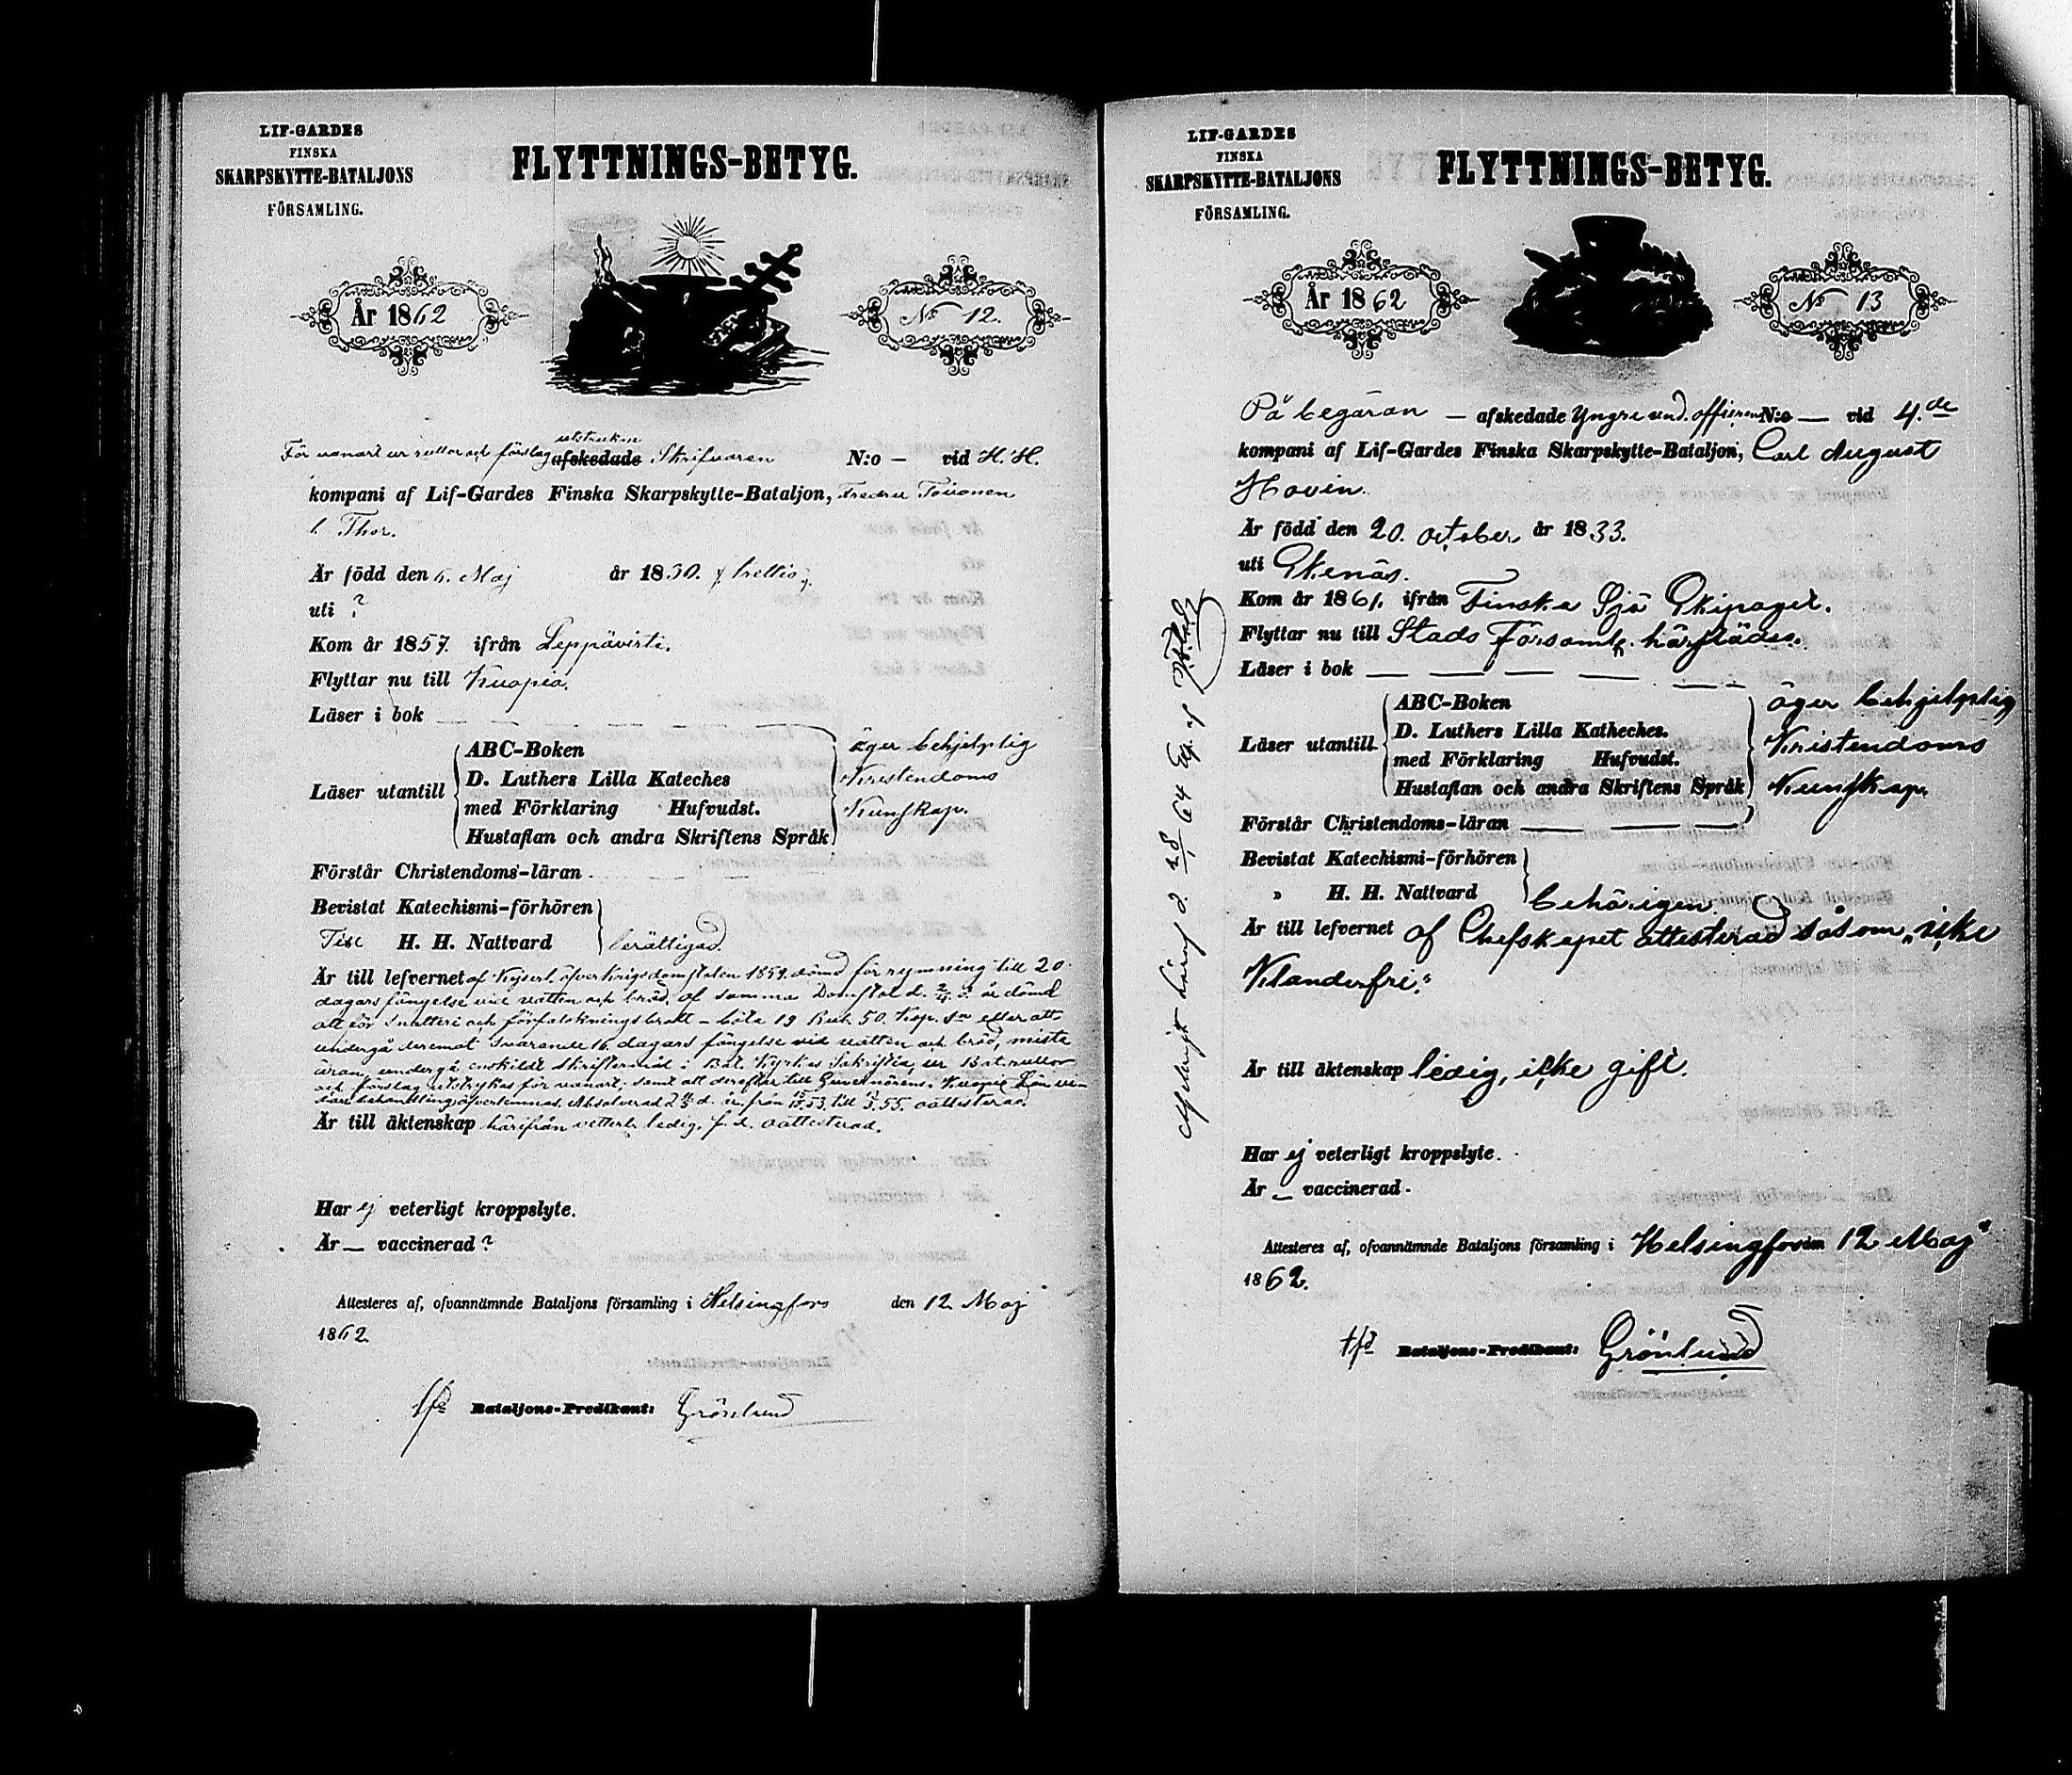 LIF-GARDES
FINSKA
SKARPSKYTTE-BATALJONS
FÖRSAMLING.
FLYTTNINGS-BETYG.
År 1862
No 12.
utstruken
För vanart ur rullor och förslag afskedade Skrifvaren N:o — vid H. H.
kompani af Lif-Gardes Finska Skarpskytte-Bataljon, Fredric Toivonen
l. Thor.
Är född den 6. Maj år 1830. / trettio /.
uti ?
Kom år 1857. ifrån Leppävirta.
Flyttar nu till Kuopio.
Läser i bok — — — — — —
Läser utantill
ABC-Boken
D. Luthers Lilla Kateches
med Förklaring Hufvudst.
Hustaflan och andra Skriftens Språk
äger behjelplig
Kristendoms
Kunskap.
Förstår Christendoms-läran . — — —
Bevistat Katechismi-förhören
Till H. H. Nattvard
berättigad.
Är till lefvernet af Kejserl. öfverkrigsdomstolen 1859 dömd för rymning till 20
dagars fängelse vid vatten och bröd, af samma Domstol d. 2/4 d. å. dömd
att för snatteri och förfalskningsbrott – böta 19 Rub. 50. Kop. Sr eller att
undergå deremot svarande 16 dagars fängelse vid vatten och bröd, mista
äran, undergå enskildt skriftermål i Bat. Kyrkas Sakristia, ur Bat. rullor
och förslag utstrykas för vanart; samt att derefter till Guvernörens i Kuopio Län
behandling öfverlemnas. Absolverad d. år, från 53. till 55. oattesterad.
Är till äktenskap härifrån vetterl. ledig, f. d. oattesterad.
Har ej veterligt kroppslyte.
Är — vaccinerad ?
Attesteres af, ofvannämnde Bataljons församling i Helsingfors den 12 Maj
1862.
tfd Bataljons-Predikant: Grönlund
LIF-GARDES
FINSKA
SKARPSKYTTE-BATALJONS
FÖRSAMLING.
FLYTTNINGS-BETYG.
År 1862
No 13
På begäran — afskedade Yngre und. officern N:o — vid 4.de
kompani af Lif-Gardes Finska Skarpskytte-Bataljon, Carl August
Hovin.
Är född den 20. october år 1833.
uti Ekenäs.
Kom år 1861. ifrån Finska Sjö Ekipaget.
Flyttar nu till Stads Församl. härstädes.
Läser i bok — — — — — —
Läser utantill
ABC-Boken
D. Luthers Lilla Katheches.
med Förklaring Hufvudst.
Hustaflan och andra Skriftens Språk
äger behjelplig
Kristendoms
Kunskap.
Förstår Christendoms-läran — — — —
Bevistat Katechismi-förhören
» H. H. Nattvard
behörigen.
Är till lefvernet af Chefskapet attesterad såsom „icke
Klanderfri."
Är till äktenskap ledig, icke gift.
Har ej veterligt kroppslyte.
Är — vaccinerad.
Attesteres af, ofvannämnde Bataljons församling i Helsingfors den 12 Maj
1862.
tfd Bataljons-Predikant: Grönlund